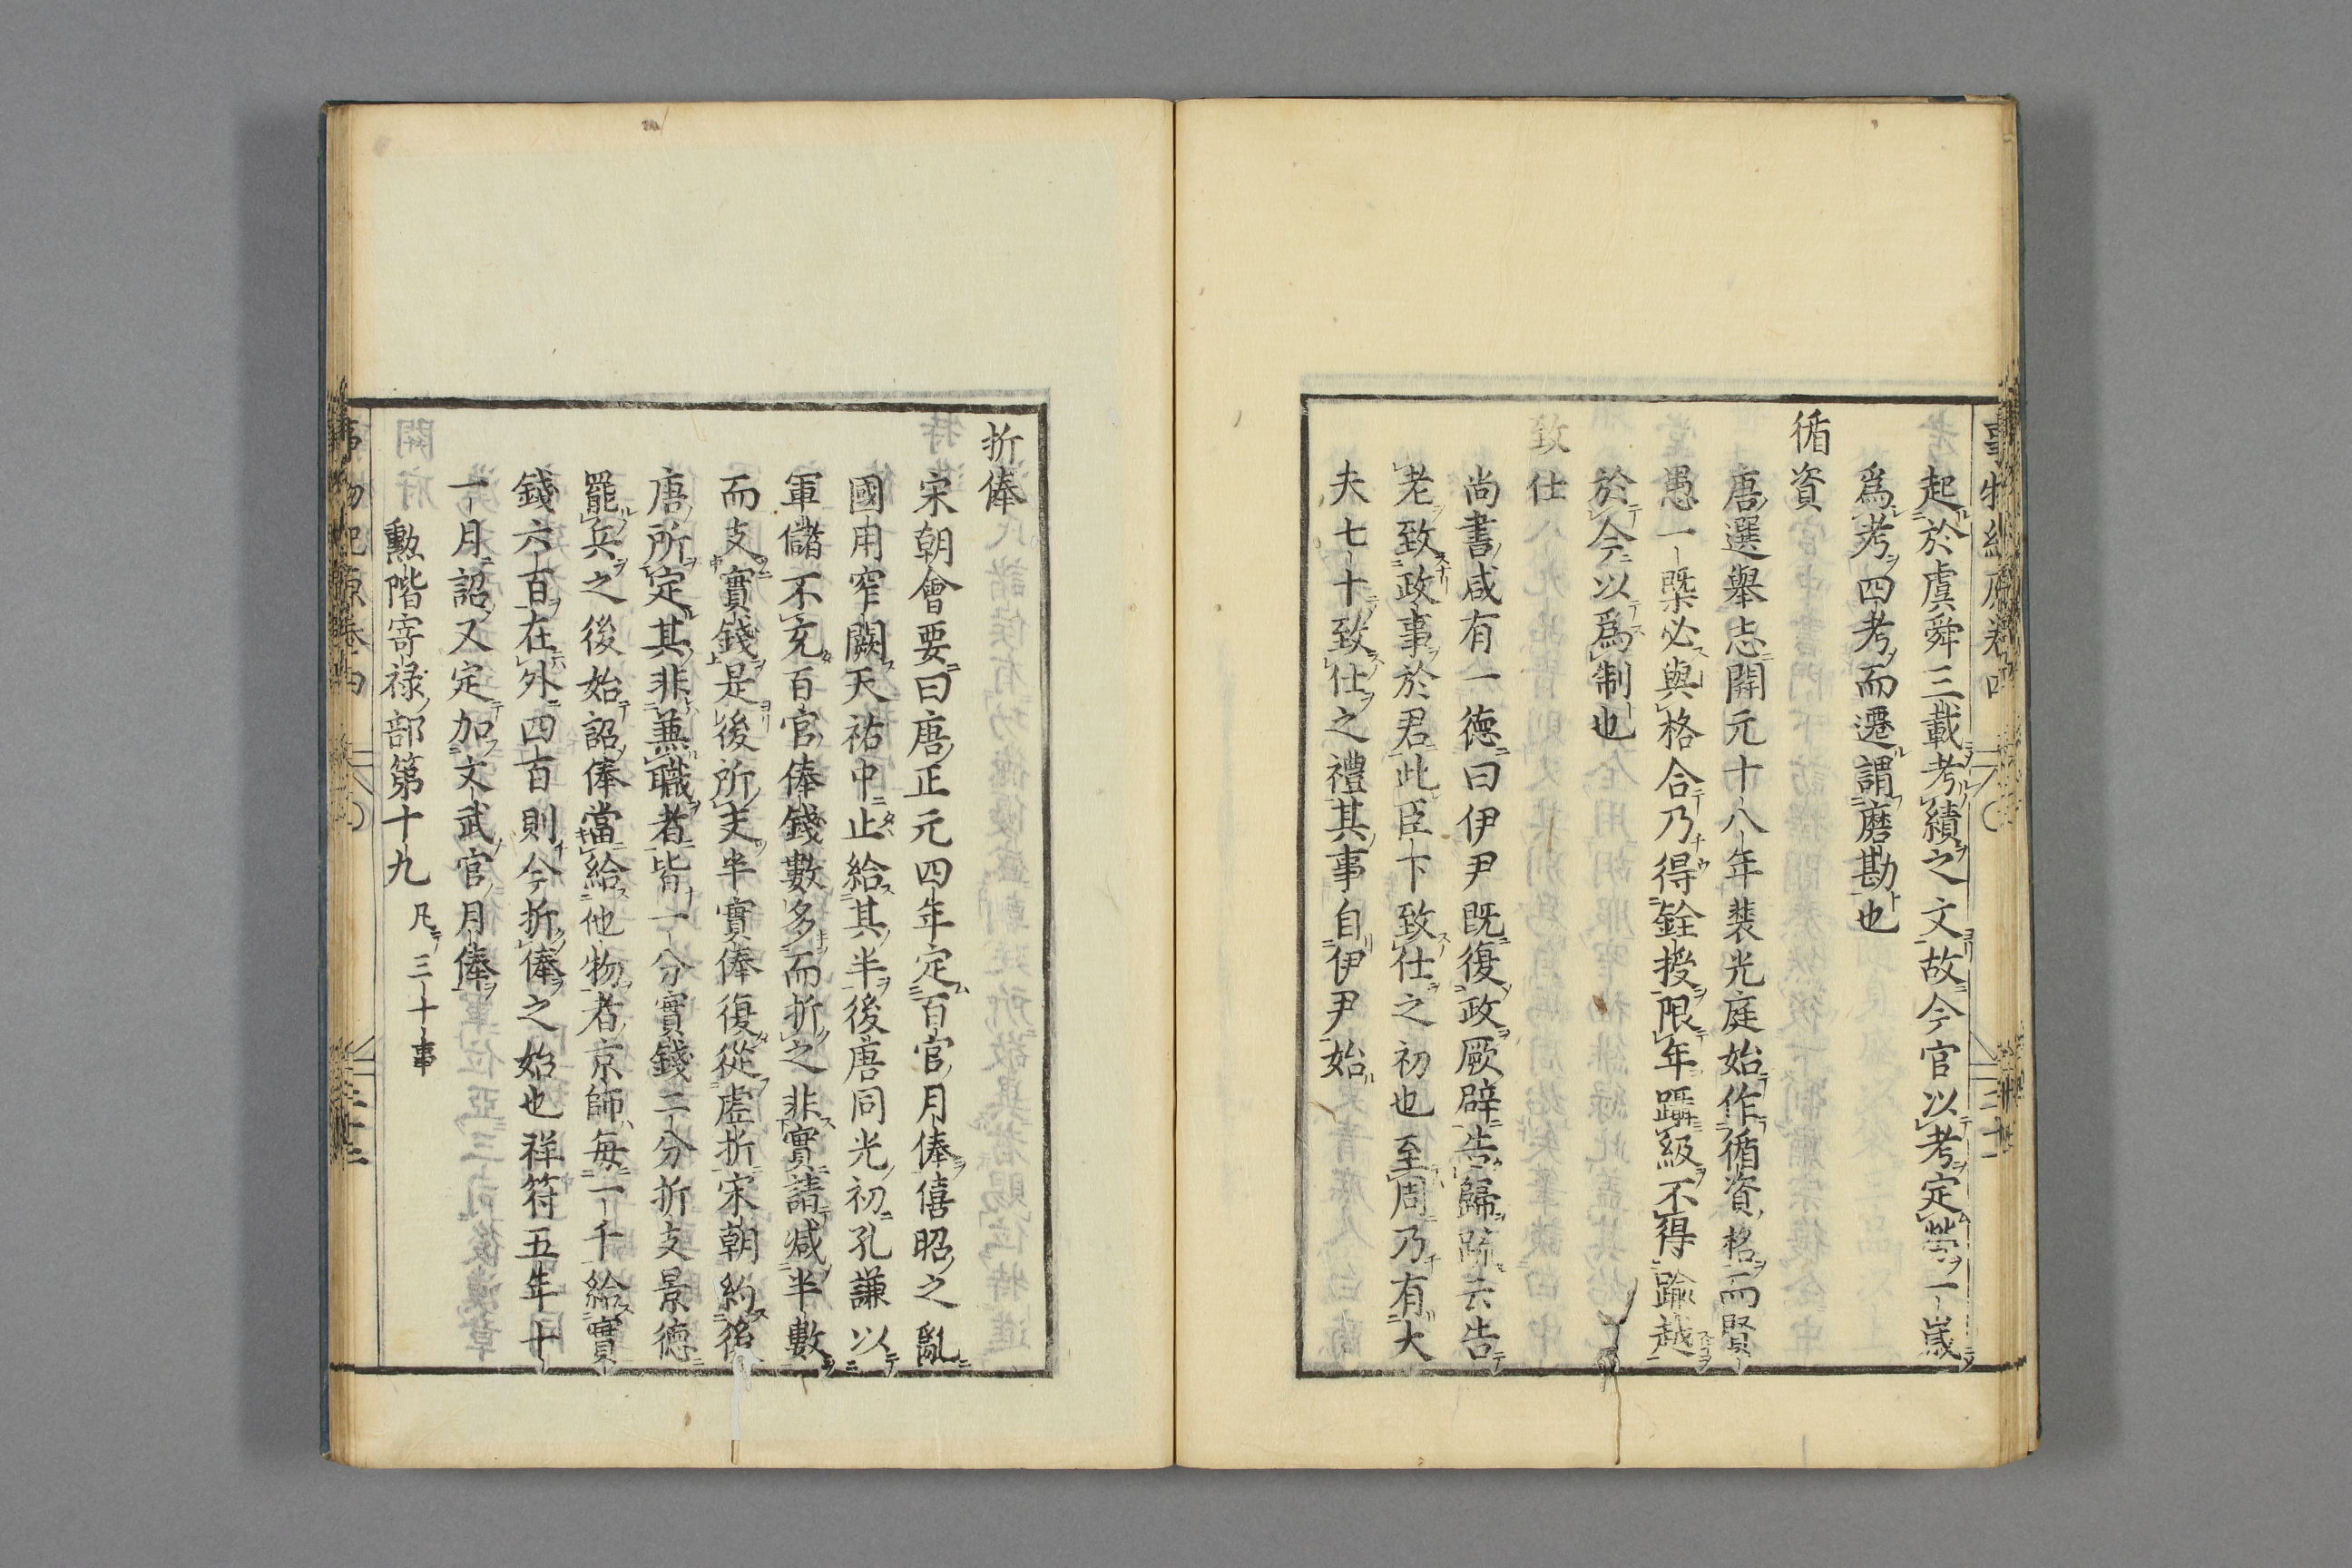 起於虞舜三載考績之文故今官以考定勞一歲
爲考四考而遷謂磨勘也
循資
唐選舉志開元十八年裴光庭始作循資格而賢
愚一槩必與格合乃得銓授限年躡級不得踰越
於今以爲制也
致仕
尚書咸有一德曰伊尹既復政厥辟告歸䟽云告
老致政事於君此臣下致仕之初也至周乃有大
夫七十致仕之禮其事自伊尹始
折俸
宋朝會要曰唐正元四年定百官月俸僖昭之亂
國用窄闕天祐中止給其半後唐同光初孔謙以
軍儲不充百官俸錢數多而折之非實請減半數
而支實錢是後所支半實俸復從虛折宋朝約後
唐所定其非兼職者皆一分實錢二分折支景德
罷兵之後始詔俸當給他物者京師每一千給實
錢六百在外四百則今折俸之始也祥符五年十
一月詔又定加文武官月俸
勳階寄禄部第十九 凡三十事